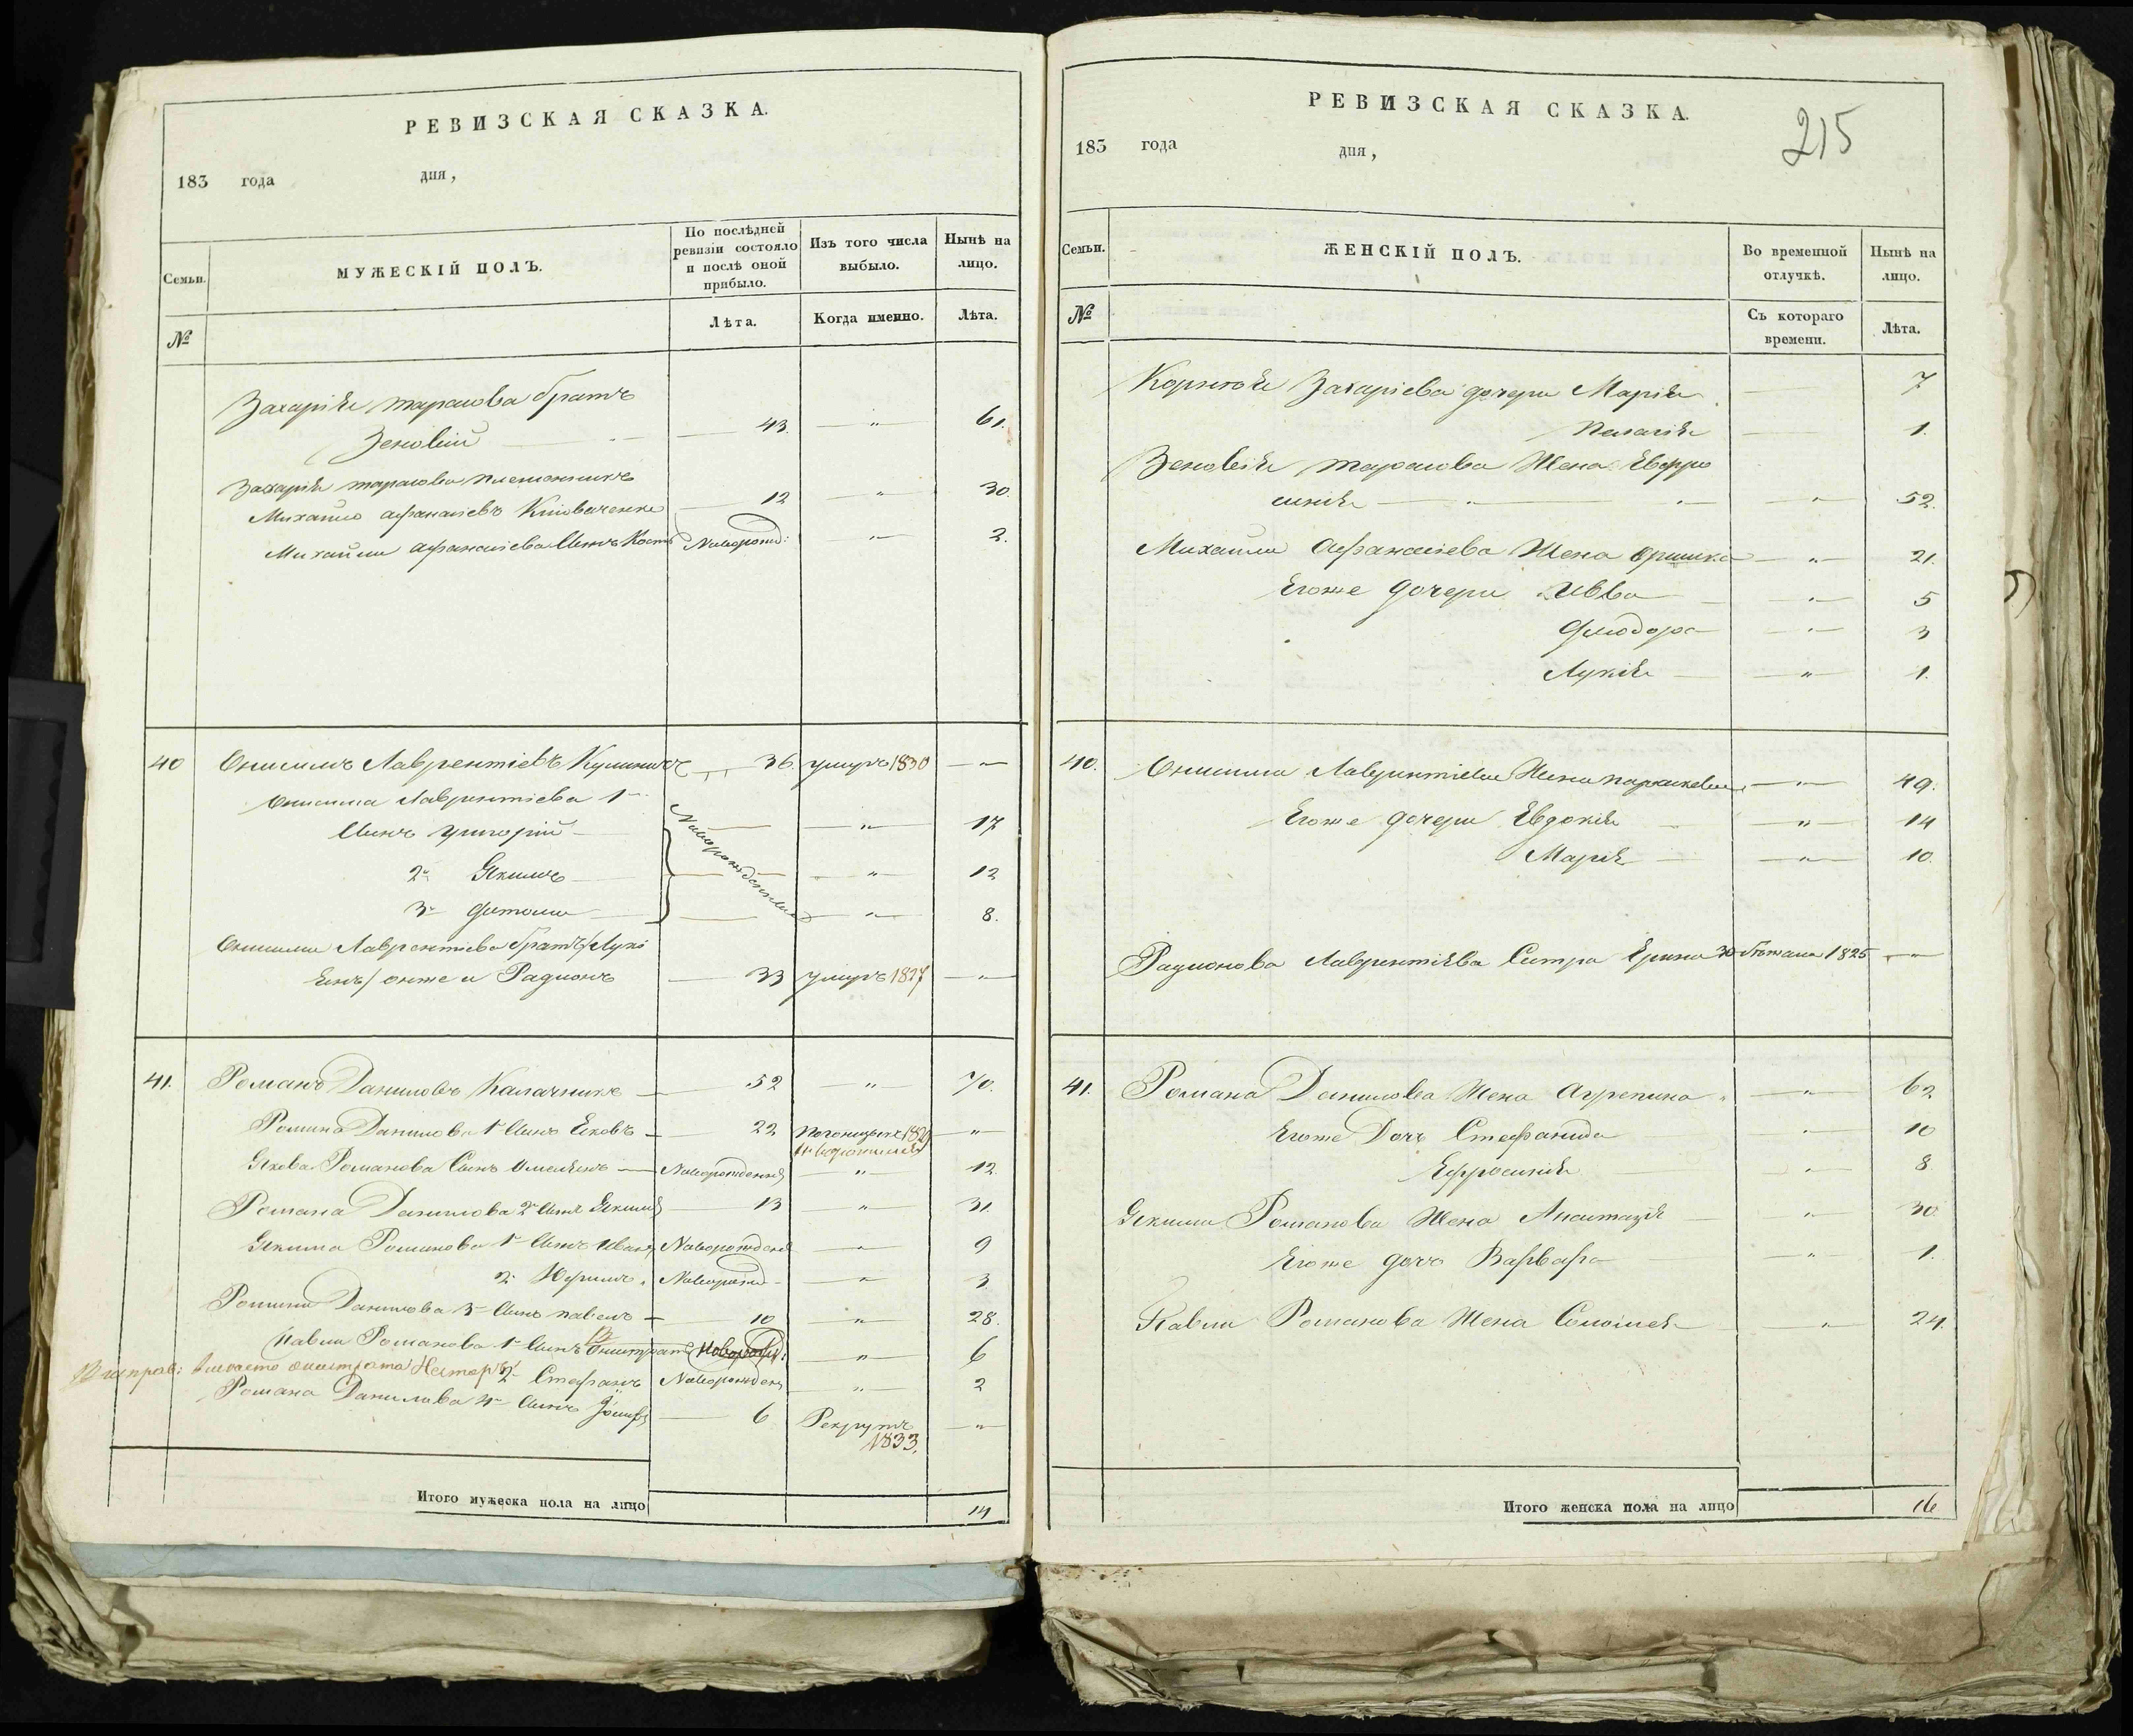 РЕВИЗСКАЯ СКАЗКА.
183 года дня,
Семьи.
МУЖЕСКІЙ ПОЛЪ.
По послѣдней ревизіи состояло и послѣ оной прибыло.
Изъ того числа выбыло.
Нынѣ на лицо.
№
Лѣта.
Когда именно.
Лѣта.
Захарія тарасова братъ
Зеновій 43. — " — 61.
Захарія тарасова племянникъ
Михайло афанасіевъ 12 — " — 30.
Михайла афанасіева Сынъ Новорожд: — " — 2.
40 Онисимъ Лаврентіевъ 36. умеръ 1830 — " —
Онисима Лаврентіева 1й
Сынъ Григорій — " — 17
2й Якимъ — " — 12
3й — " — 8.
Новорожденные
Онисима Лаврентіева братъ
онже и Радионъ 33 умеръ 1827 — " —
41. Романъ Даниловъ Калачникъ 52 — " — 70.
Романа Данилова 1й Сынъ Яковъ 22 — " —
Якова Романова Сынъ Новорожденный " 12.
Романа Данилова 2й Сынъ Якимъ 13 — " — 31.
Якима Романова 1й Сынъ Иванъ Новорожден — " — 9
2й Новорожд — " — 3.
Романа Данилова 3й Сынъ павелъ 10 — " — 28.
Павла Романова 1й Сынъ Новорожд: — " — 6
вместо Нестеръ 2й Стефанъ Новорожден — " — 2
Романа Данилова 4й Сынъ Іосифъ 6 Рекрутъ 1833. — " —
Итого мужеска пола на лицо 14
РЕВИЗСКАЯ СКАЗКА.
215
183 года дня,
Семьи.
ЖЕНСКІЙ ПОЛЪ.
Во временной отлучкѣ.
Нынѣ на лицо.
№
Съ котораго времени.
Лѣта.
Захаріева дочери Марія 7
Пелагія 1.
Зеновія тарасова Жена Евфро
синія — " — 52.
Михайла Афанасіева Жена Оришка — " — 21.
Егоже дочери — " — 5
Феодора — " — 3
Лукія — " — 1.
40. Онисима Лаврентіева Жена параскевия — " — 49.
Егоже дочери Евдокія — " — 14
Марія — " — 10.
Радионова Лаврентіева Сестра Ерина 30 1825 — " —
41. Романа Данилова Жена Агрепина — " — 62
Егоже Дочь Стефанида — " — 10
Ефросинія — " — 8
Якима Романова Жена Анастазія — " — 30.
Егоже дочь Варвара — " — 1.
Павла Романова Жена Соломея — " — 24.
Итого женска пола на лицо 16